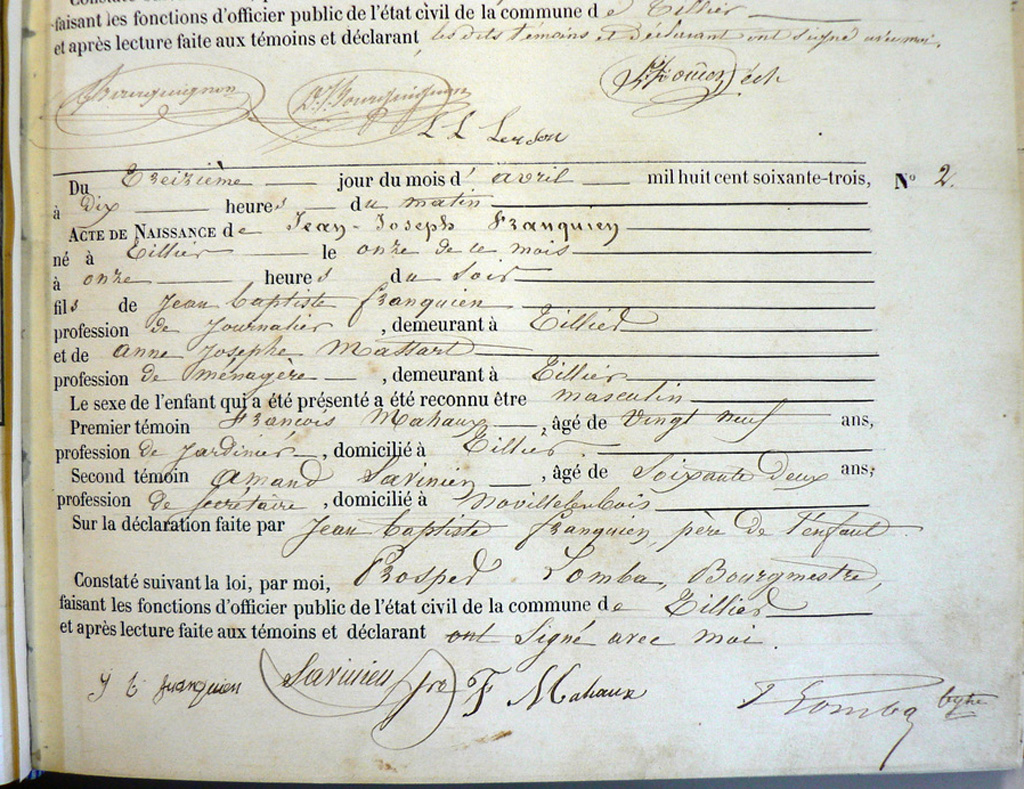 faisant les fonctions d'officier public de l'état civil de la commune de Tillier
et après lecture faite aux témoins et déclarant les dits témoins et déclarant ont signé avec moi.
L L Lenson
Du Treizième jour du mois d'avril mil huit cent soixante-trois, No 2.
à Dix heures du matin
ACTE DE NAISSANCE de Jean-Joseph Franquien
né à Tillier le onze de ce mois
à onze heures du soir
fils de Jean Baptiste Franquien
profession de Journalier, demeurant à Tillier
et de Anne Josephe Massart
profession de ménagère, demeurant à Tillier
Le sexe de l'enfant qui a été présenté a été reconnu être masculin
Premier témoin François Mahaux, âgé de vingt neuf ans,
profession de Jardinier, domicilié à Tillier.
Second témoin Amand Savinien, âgé de Soixante Deux ans,
profession de secrétaire, domicilié à Novillelesbois
Sur la déclaration faite par Jean Baptiste Franquien, père de l'enfant
Constaté suivant la loi, par moi, Prosper Lomba, Bourgmestre,
faisant les fonctions d'officier public de l'état civil de la commune de Tillier
et après lecture faite aux témoins et déclarant ont signé avec moi.
J B franquien Savinien F Mahaux P Lomba